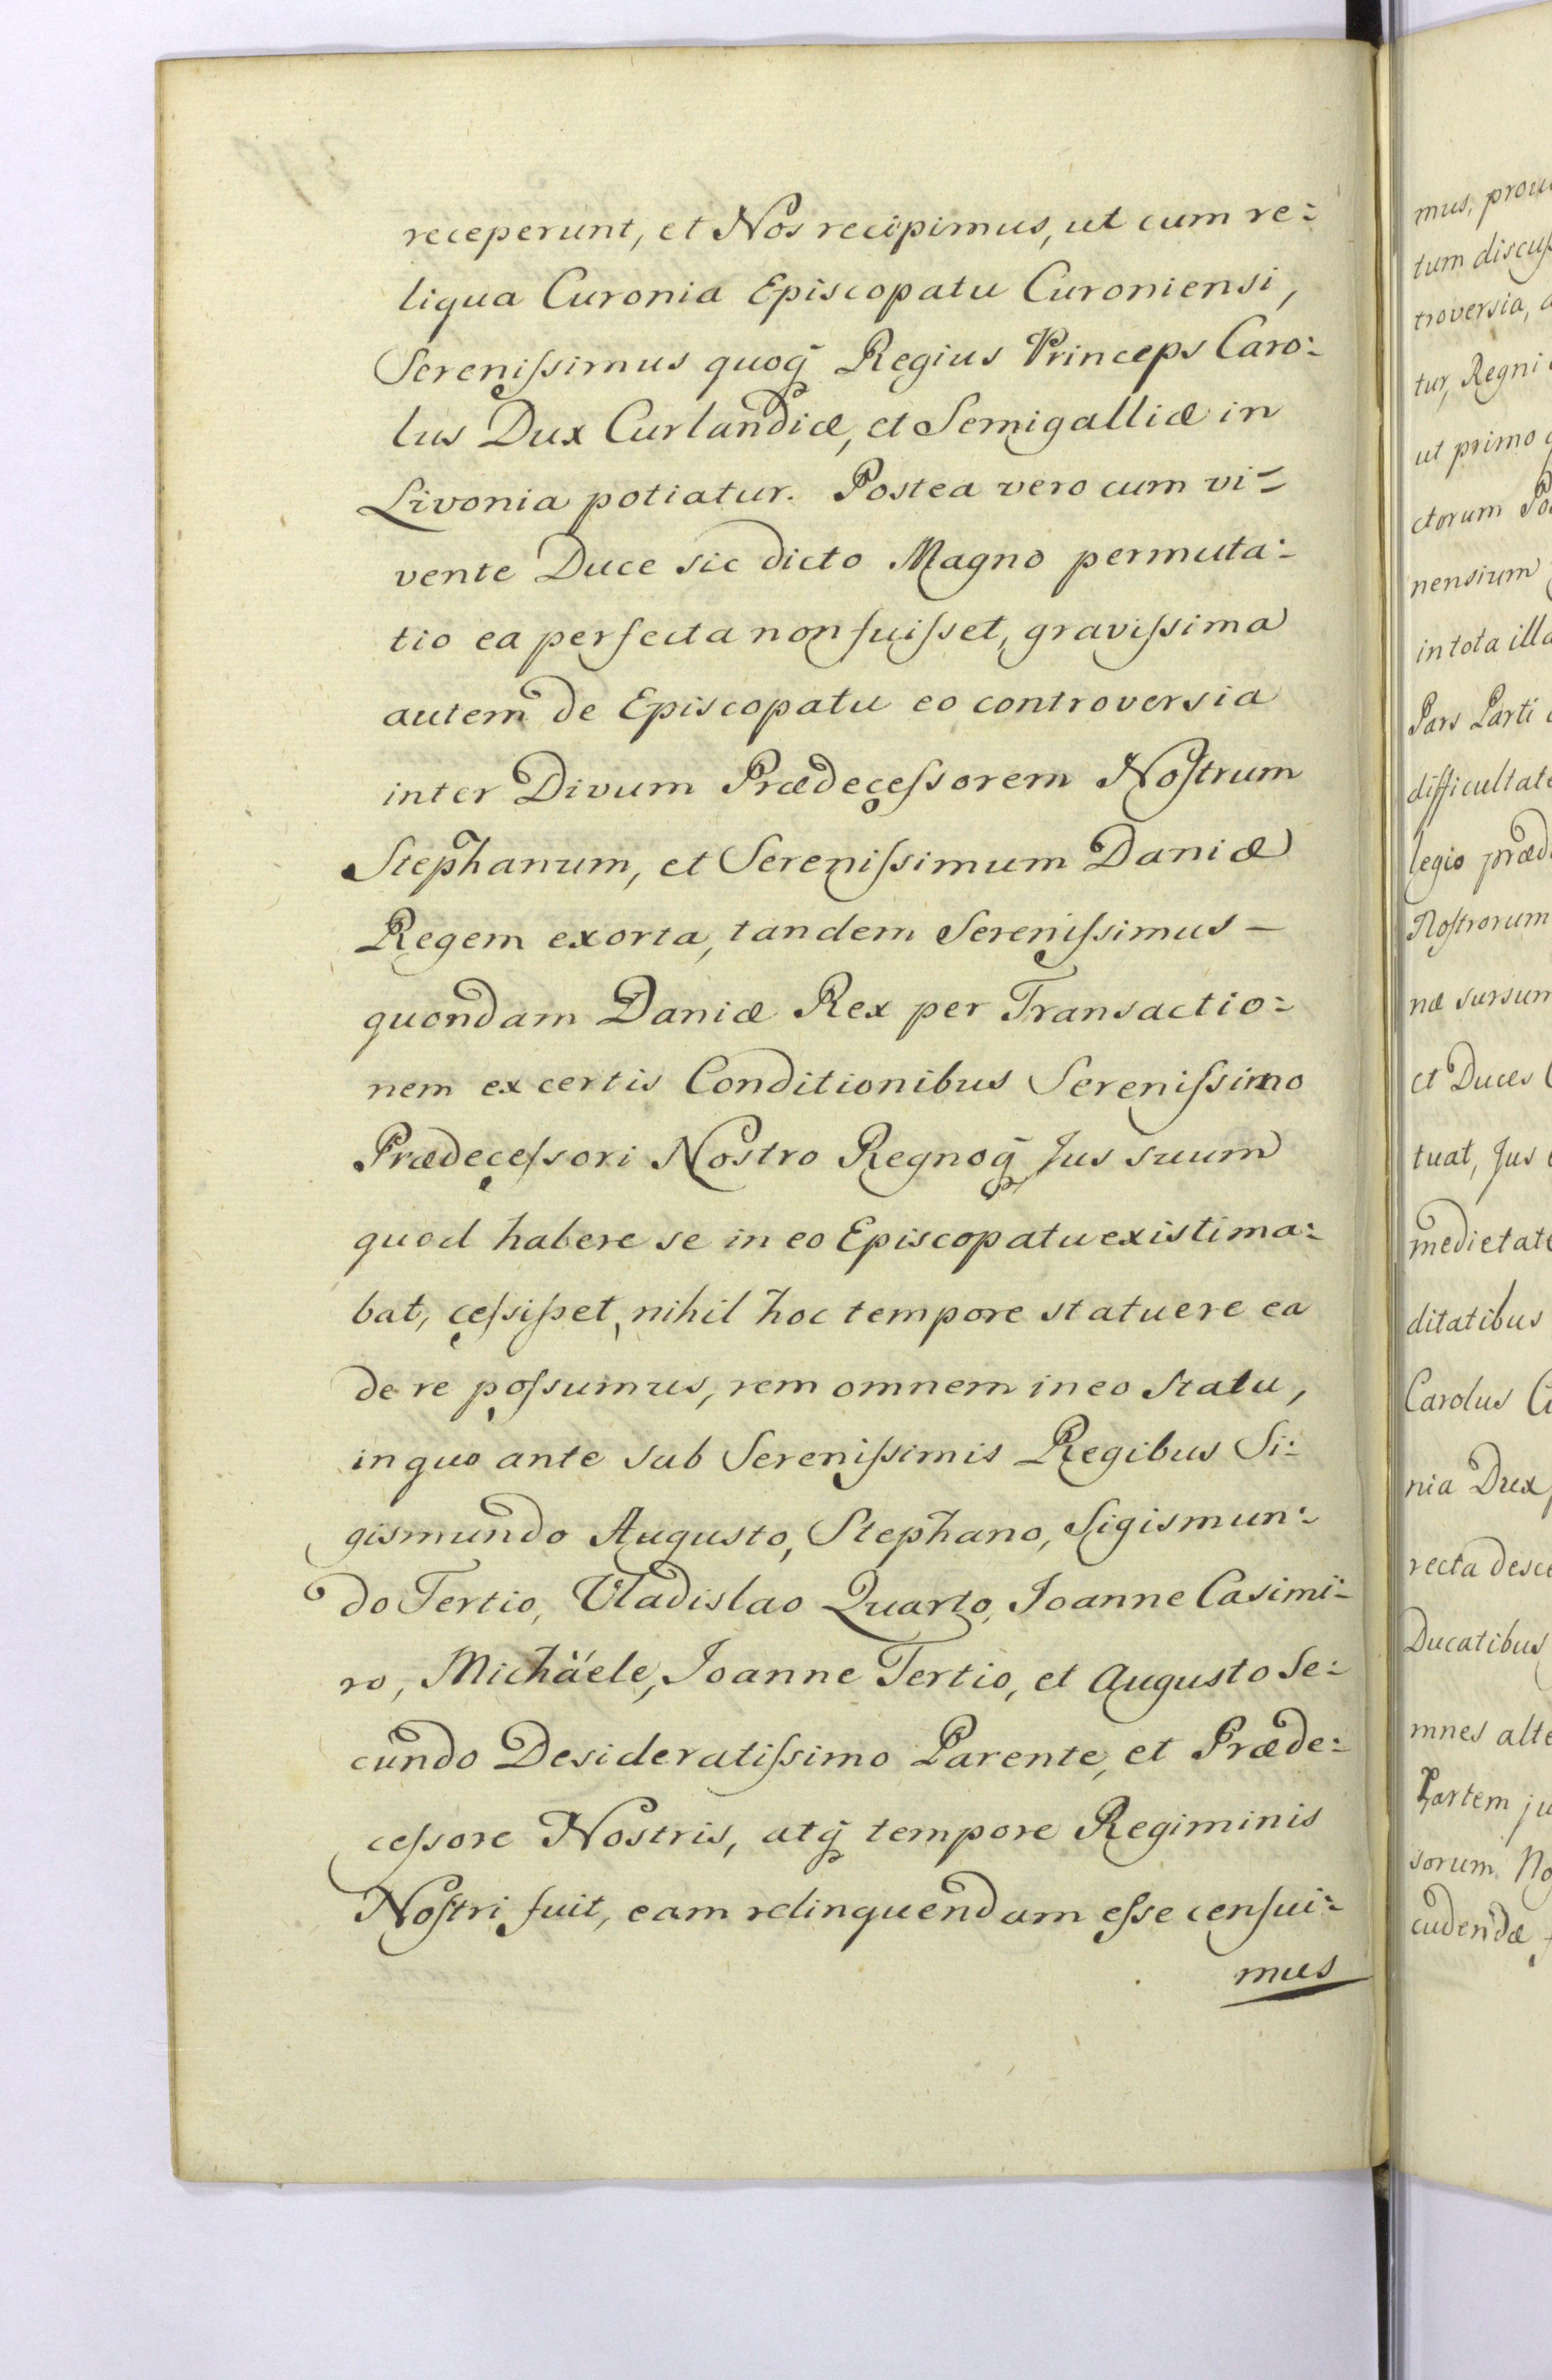 receperunt, et Nos recipimus, ut cum re=
liqua Curonia Episcopatu Curoniensi,
Serenißimus quoq̃ Regius Princeps Caro=
lus Dux Curlandiæ, et Semigalliæ in
Livonia potiatur. Postea vero cum vi=
vente Duce sic dicto Magno permuta=
tio ea perfecta non fuißet, gravißima
autem de Episcopatu eo controversia
inter Divum Prædeceßorem Nostrum
Stephanum, et Serenißimum Daniæ
Regem exorta, tandem Serenißimus –
quondam Daniæ Rex per Transactio=
nem ex certis Conditionibus Serenißimo
Prædeceßori Nostro Regnoq̃ Jus suum
quod habere se in eo Episcopatu existima=
bat, ceßißet, nihil hoc tempore statuere ea
de re poßumus, rem omnem in eo statu,
in quo ante sub Serenißimis Regibus Si=
gismundo Augusto, Stephano, Sigismun=
do Tertio, Vladislao Quarto, Joanne Casimi=
ro, Michäele, Joanne Tertio, et Augusto Se=
cundo Desideratißimo Parente, et Præde=
ceßore Nostris, atq̃ tempore Regiminis
Nostri fuit, eam relinquendam eße censui=
mus
mus, prou
tum discuß
troversia,
tur, Regni
ut primo
ctorum
nensium
in tota illa
Pars Parti
difficultate
legio præd
Nostrorum
næ sursum
et Duces
tuat, Jus
medietate
ditatibus
Carolus
nia Dux
recta desce
Ducatibus
mnes alte
Partem ju
sorum No
cudendæ